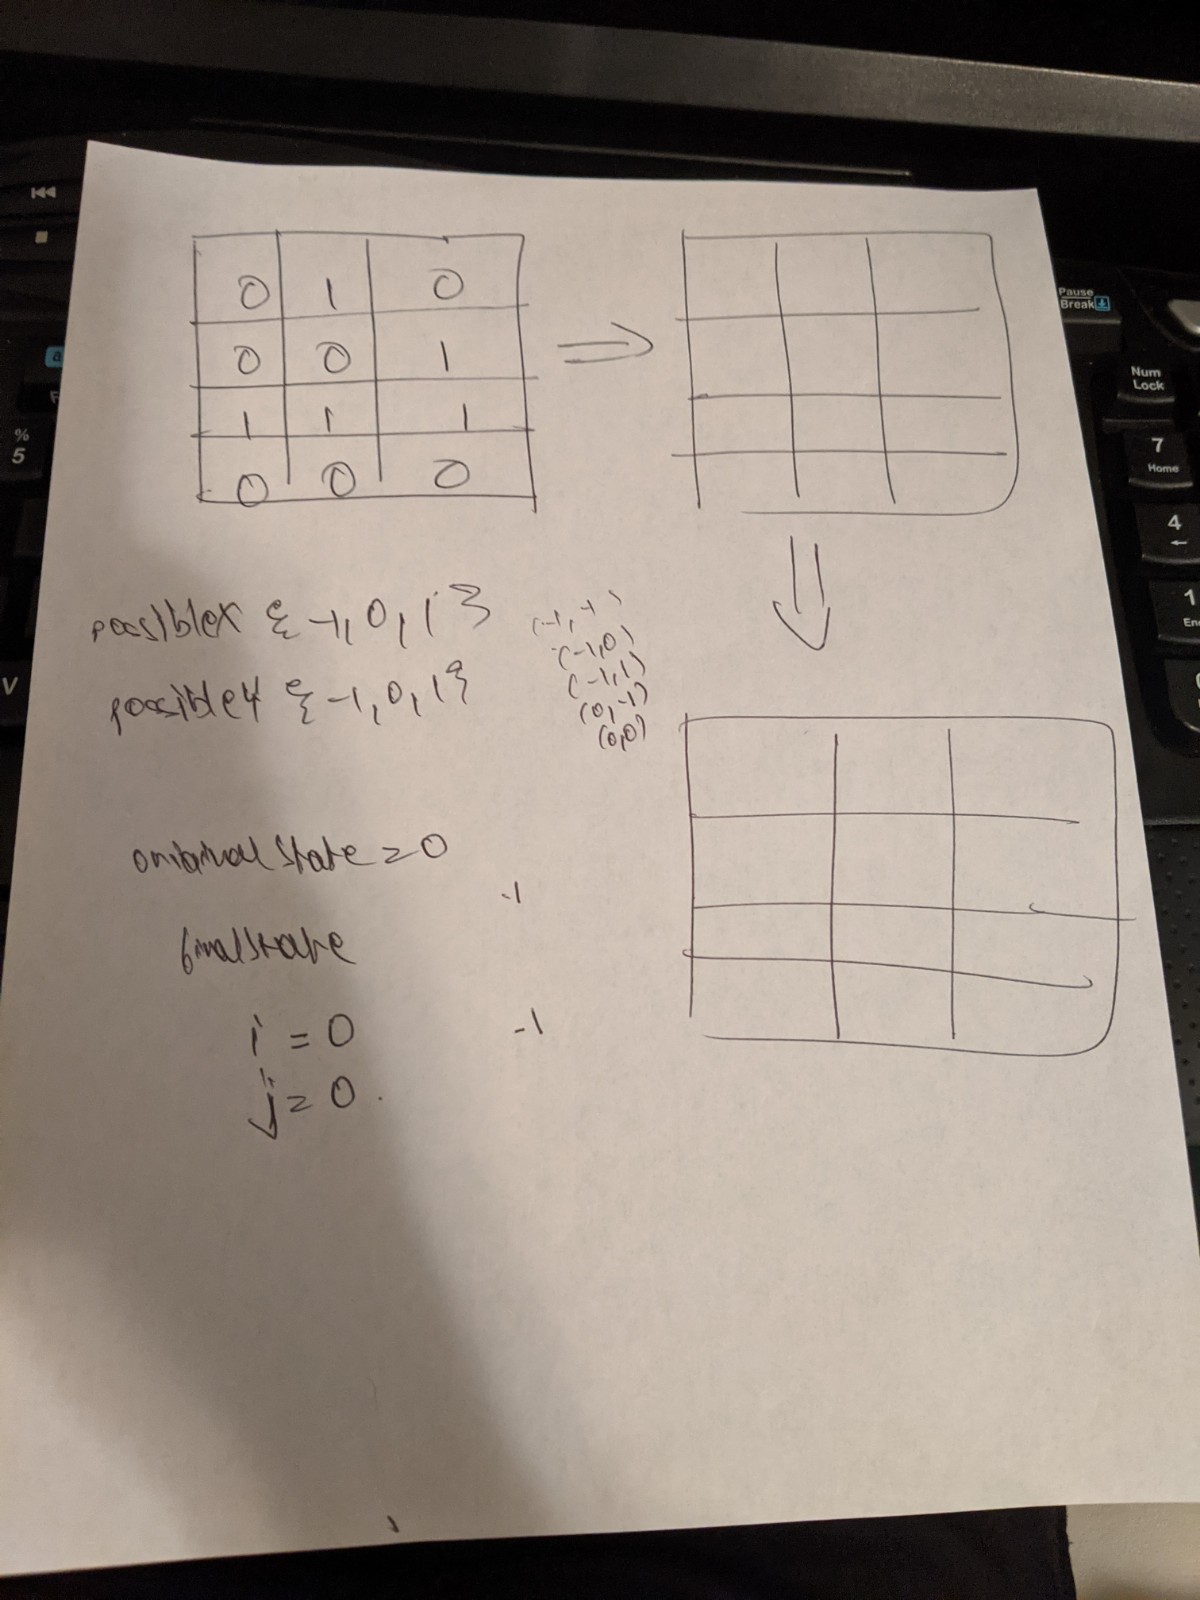 0 1 0
0 0 1
1 1 1
0 0 0
possiblex {-1, 0, 1}
possibley {-1, 0, 1}
(-1, -1)
(-1,0)
(-1,1)
(0,-1)
(0,0)
original state = 0
-1
final state
i = 0
-1
j = 0
Pause
Break
Num
Lock
7
Home
4
←
1
%
5
V